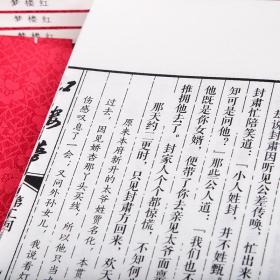 红楼梦
红楼梦
红楼梦
封肃因听见公差传唤,忙出
封肃忙陪笑道:“小人姓封,并不姓甄
知可是问他?”那些公人道:“我们也
他既是你女婿,便带了你去亲见太爷面
推拥他去了。封家人个个都惊慌,不知何
那天约二更时,只见封肃方回来,欢天
原来本府新升的太爷姓贾名化,本贯
过去,因见娇杏那丫头买线,所以他只当
伤感叹息了一会;又问外孙女儿,我说看灯
红楼梦 第二回